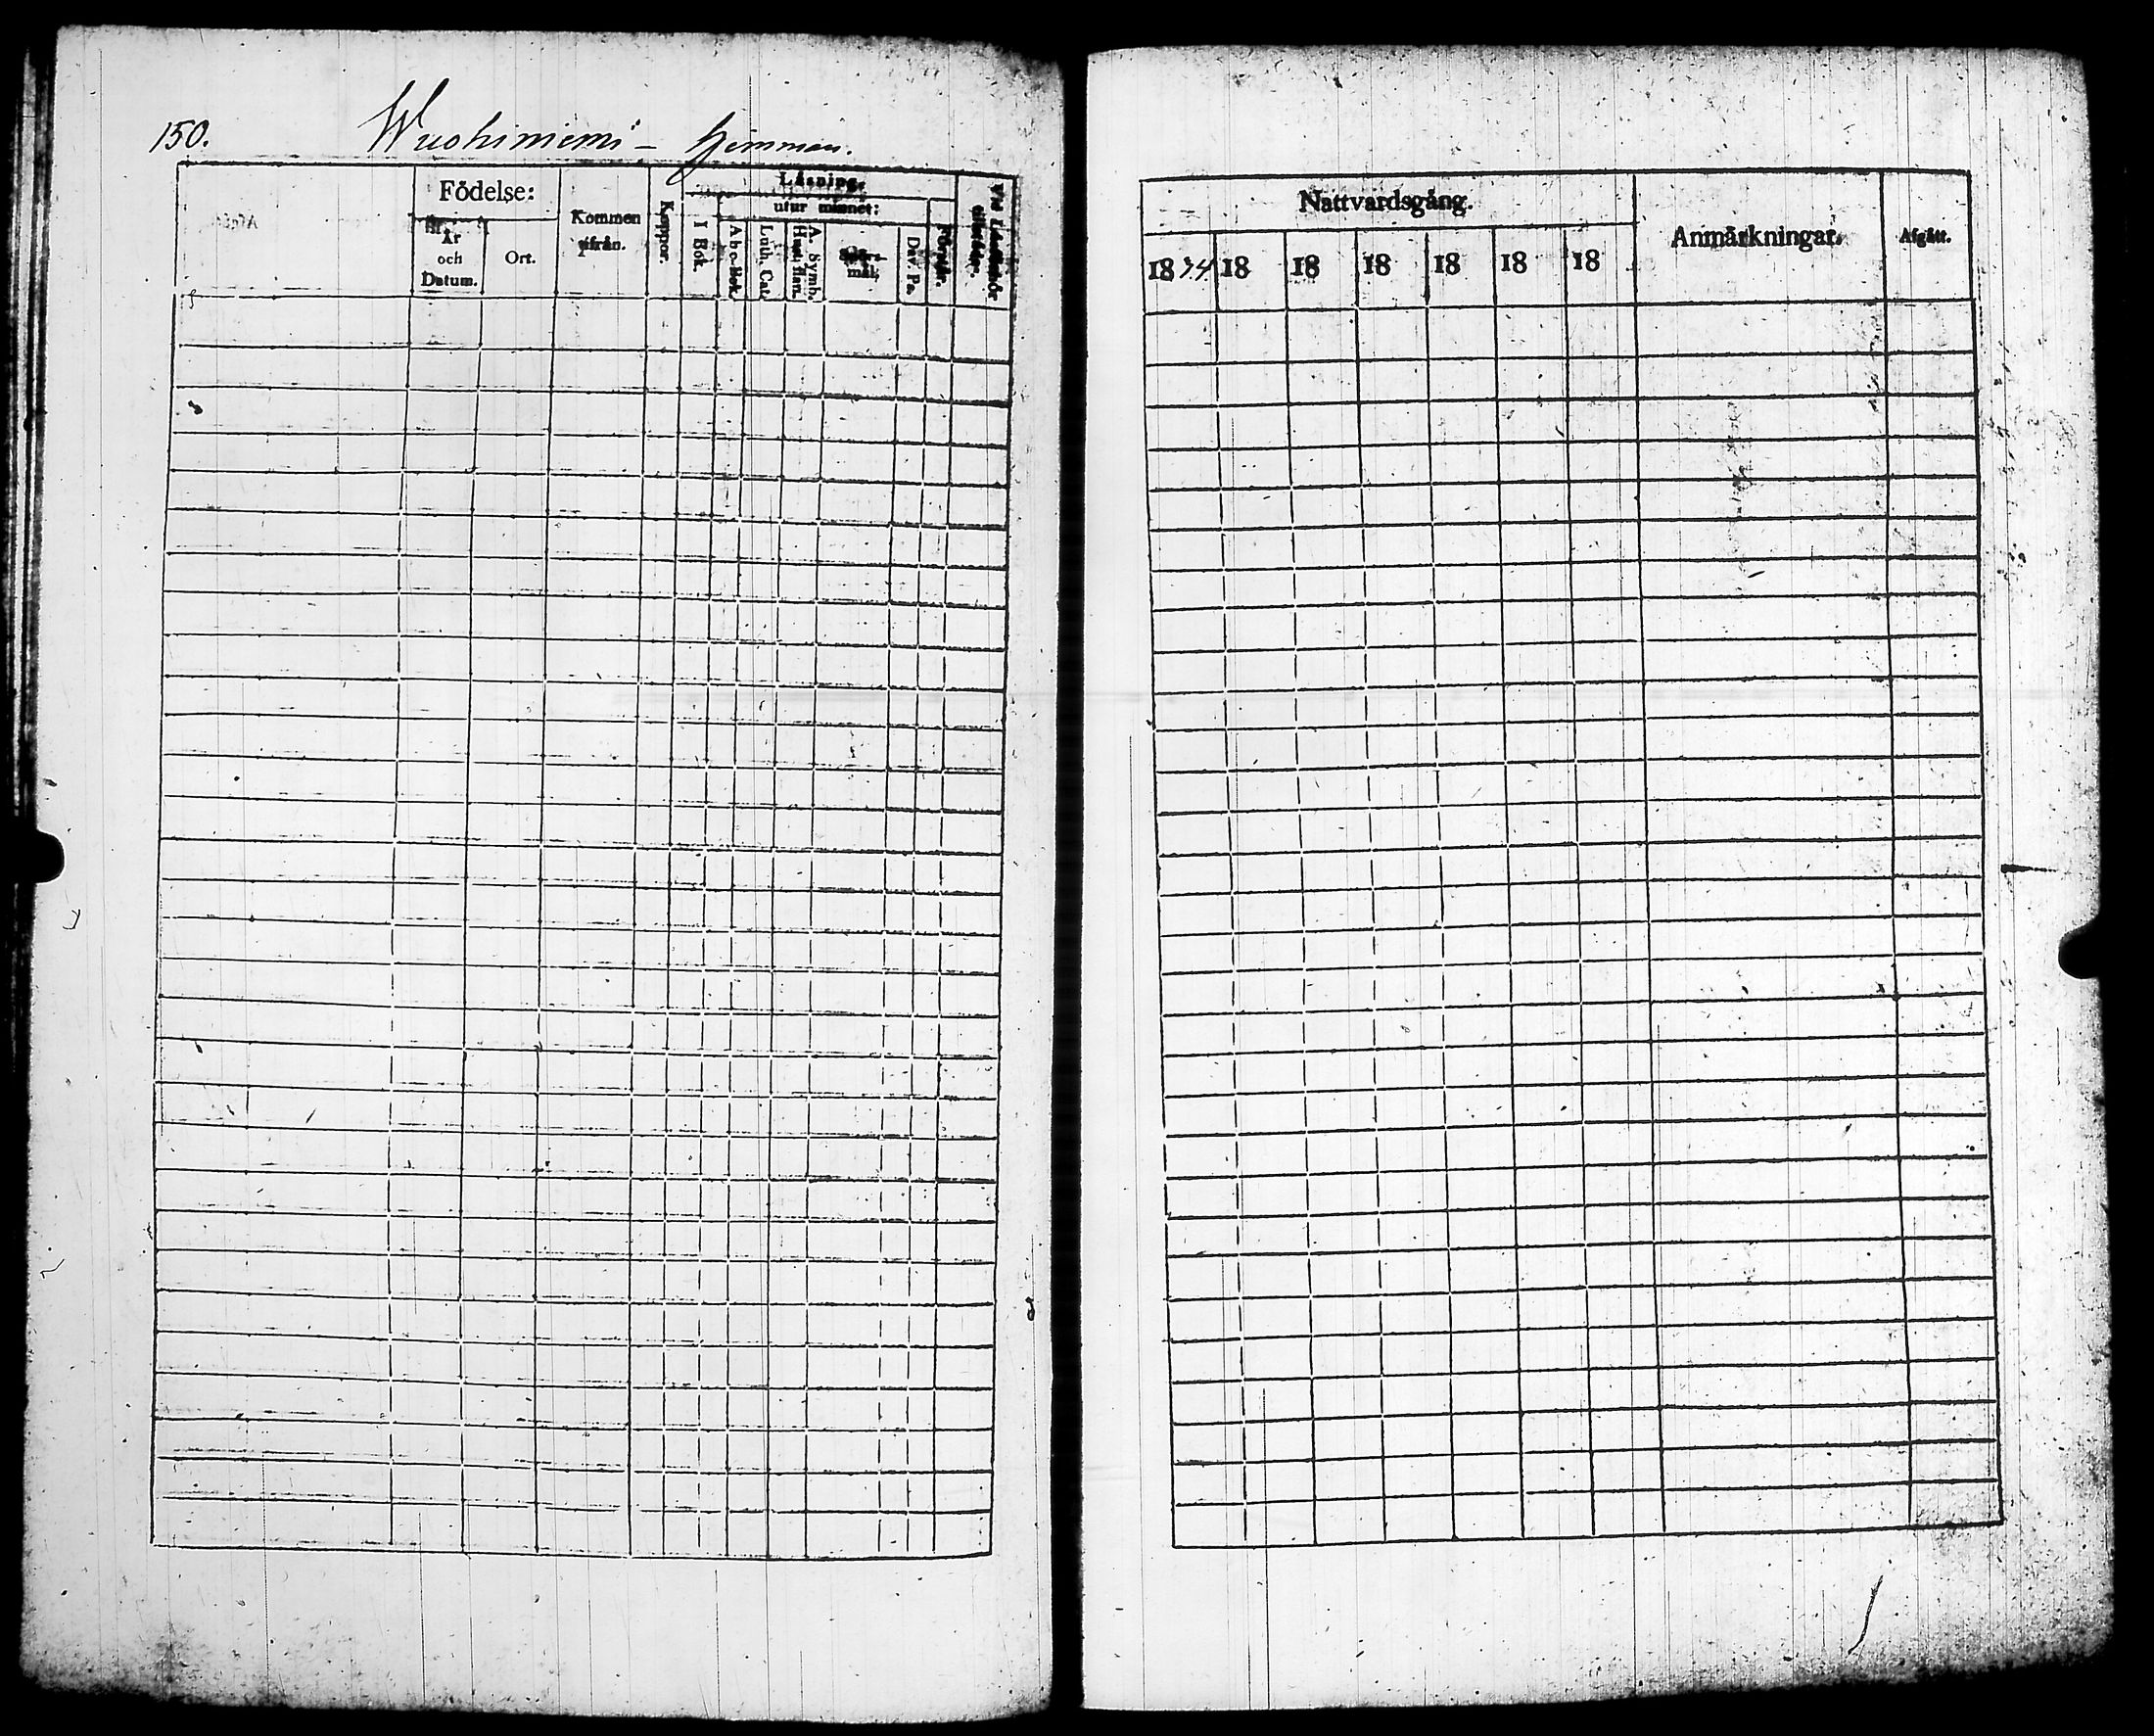 150. Wuohiniemi - hemman.
Födelse:
År
och
Datum.
Ort.
Kommen
ifrån.
Koppor.
Läsning.
utur minnet:
I Bok.
Abc-Bok.
Luth. Cat.
A. Symb.
Hust. taf.
Spörs-
mål.
Dav. Ps.
Förstår.
Nattvardsgång.
1834 18 18 18 18 18 18
Anmärkningar.
Afgått.